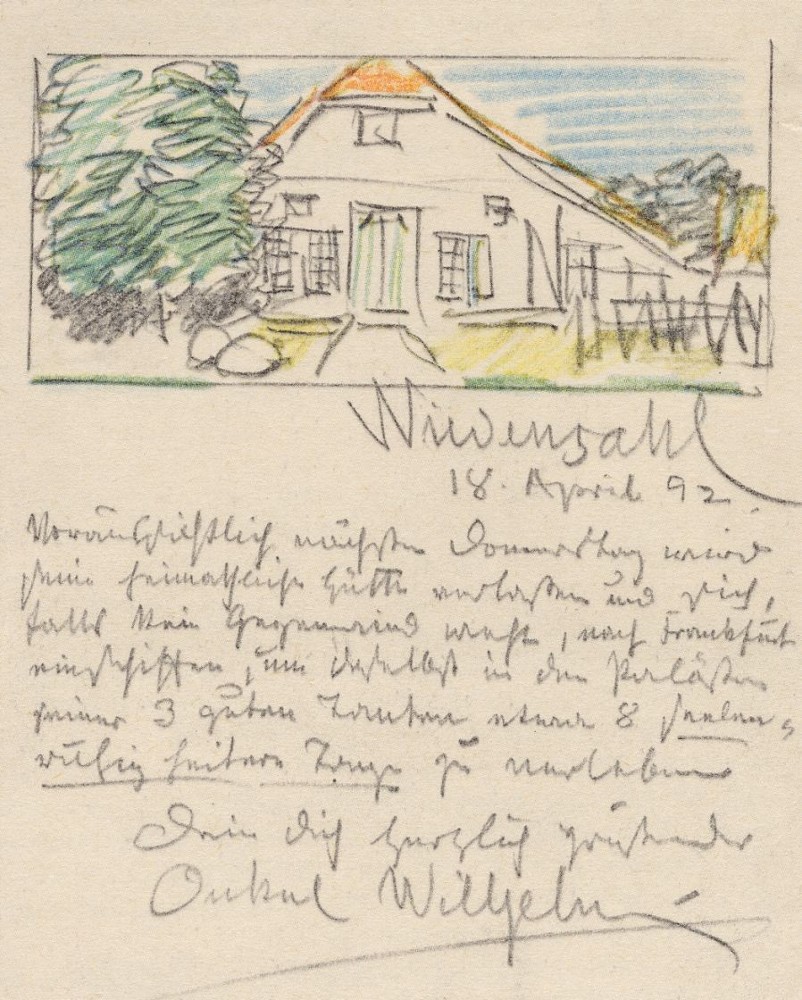 Wiedensahl
18. April 92.
Voraussichtlich nächsten Donnerstag wird
seine heimathliche Hütte verlassen und sich,
falls kein Gegenwind weht, nach Frankfurt
einschiffen, um daselbst in den Palästen
seiner 3 guten Tanten etwa 8 seelen-
ruhig heitere Tage zu verleben
Dein dich herzlich grüßender
Onkel Wilhelm